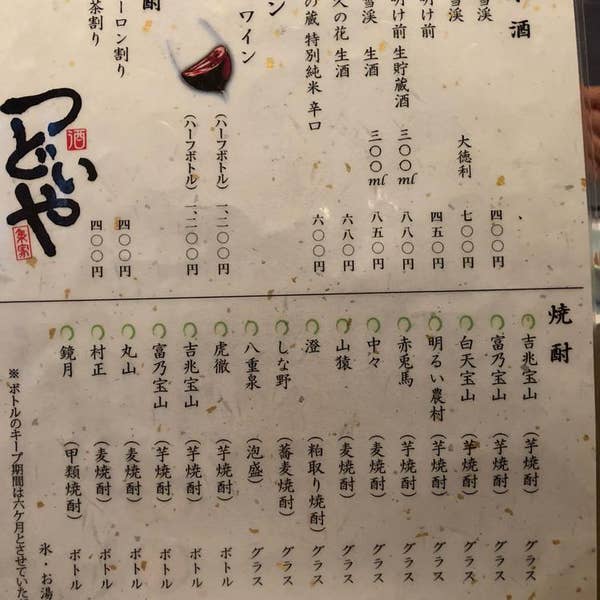 酒
雪渓 四〇〇円
雪渓 大徳利 七〇〇円
明け前 四五〇円
明け前 生貯蔵酒 三〇〇ml 八八〇円
雪渓 生酒 三〇〇ml 八五〇円
久の花 生酒 六八〇円
の蔵 特別純米 辛口 六〇〇円
ン
ワイン
(ハーフボトル) 一、二〇〇円
(ハーフボトル) 一、二〇〇円
酎
ーロン割り 四〇〇円
茶割り 四〇〇円
酒
つどいや
焼酎
吉兆宝山 (芋焼酎) グラス
富乃宝山 (芋焼酎) グラス
白天宝山 (芋焼酎) グラス
明るい農村 (芋焼酎) グラス
赤兎馬 (芋焼酎) グラス
中々 (麦焼酎) グラス
山猿 (麦焼酎) グラス
澄 (粕取り焼酎) グラス
しな野 (蕎麦焼酎) グラス
八重泉 (泡盛) グラス
虎徹 (芋焼酎) ボトル
吉兆宝山 (芋焼酎) ボトル
富乃宝山 (芋焼酎) ボトル
丸山 (麦焼酎) ボトル
村正 (麦焼酎) ボトル
鏡月 (甲類焼酎) ボトル
氷・お湯
※ボトルのキープ期間は六ケ月とさせていた